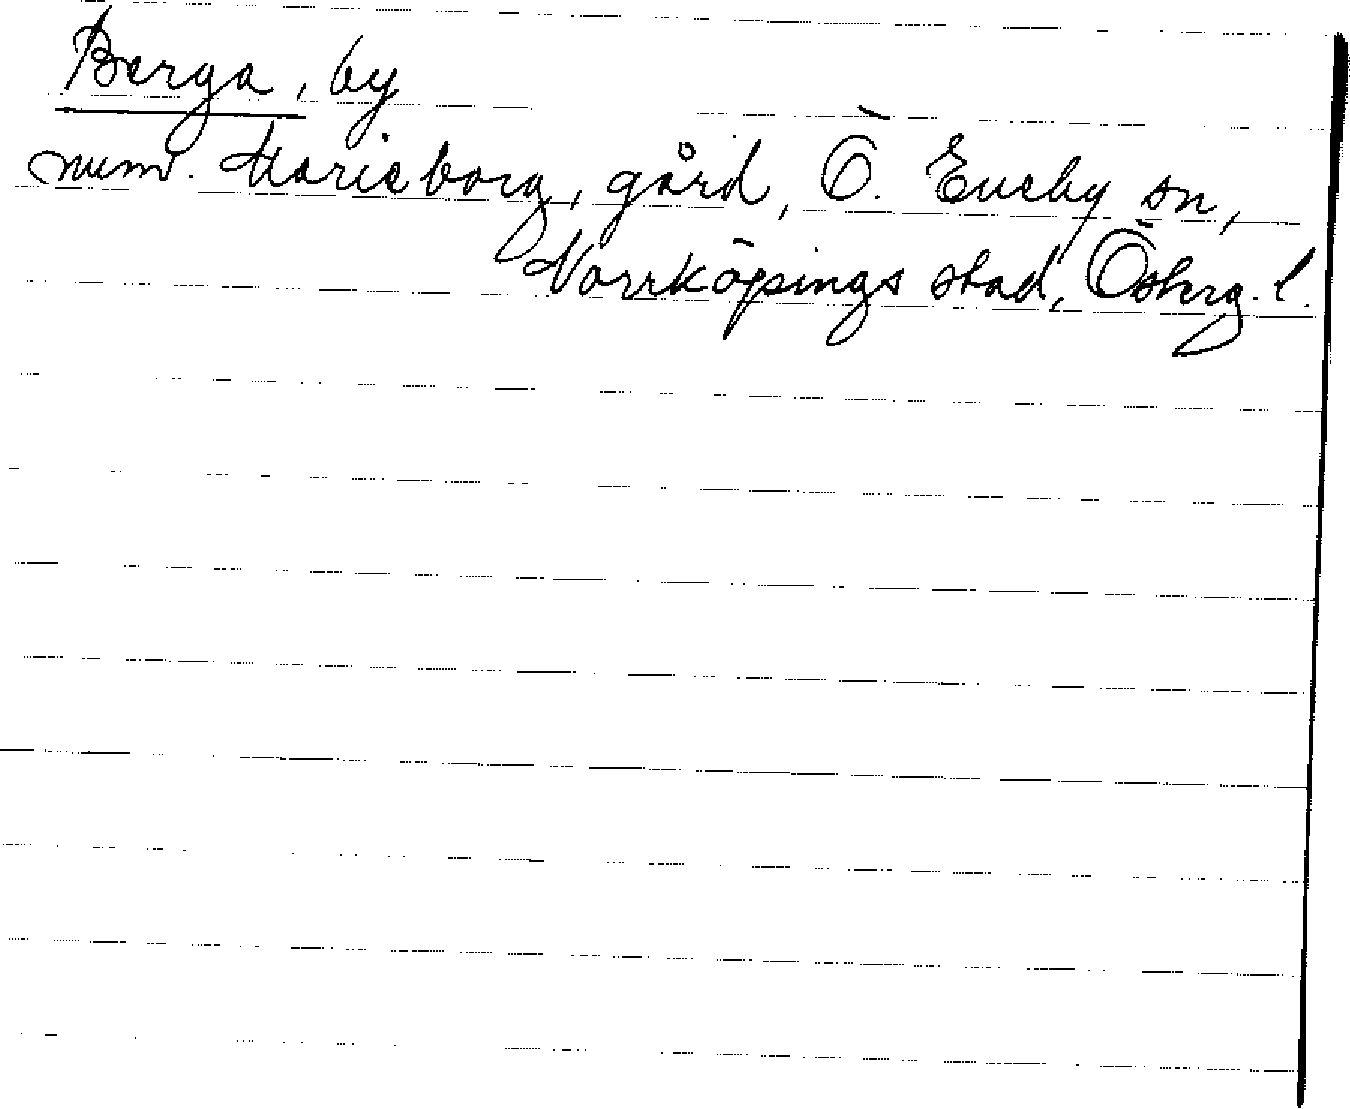 Berga, by
num. Marieborg, gård, Ö. Eneby sn,
Norrköpings stad, Östrg. l.